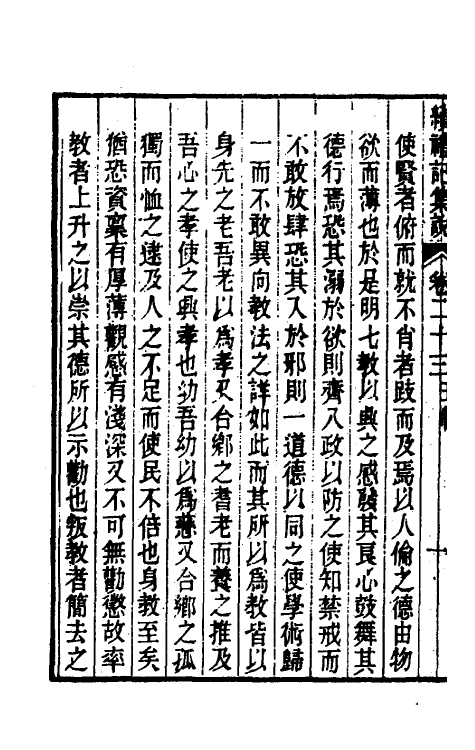 續禮記集說 卷二十三 王制 十
使賢者俯而就不肖者跂而及焉以人倫之德由物
欲而薄也於是明七教以興之感發其良心鼓舞其
德行焉恐其溺於欲則齊八政以防之使知禁戒而
不敢放肆恐其入於邪則一道德以同之使學術歸
一而不敢異向教法之詳如此而其所以為教皆以
身先之老吾老以為孝又合鄉之耆老而養之推及
吾心之孝使之興孝也幼吾幼以為慈又合鄉之孤
獨而恤之逮及人之不足而使民不倍也身教至矣
猶恐資稟有厚薄觀感有淺深又不可無勸懲故率
教者上升之以崇其德所以示勸也叛教者簡去之